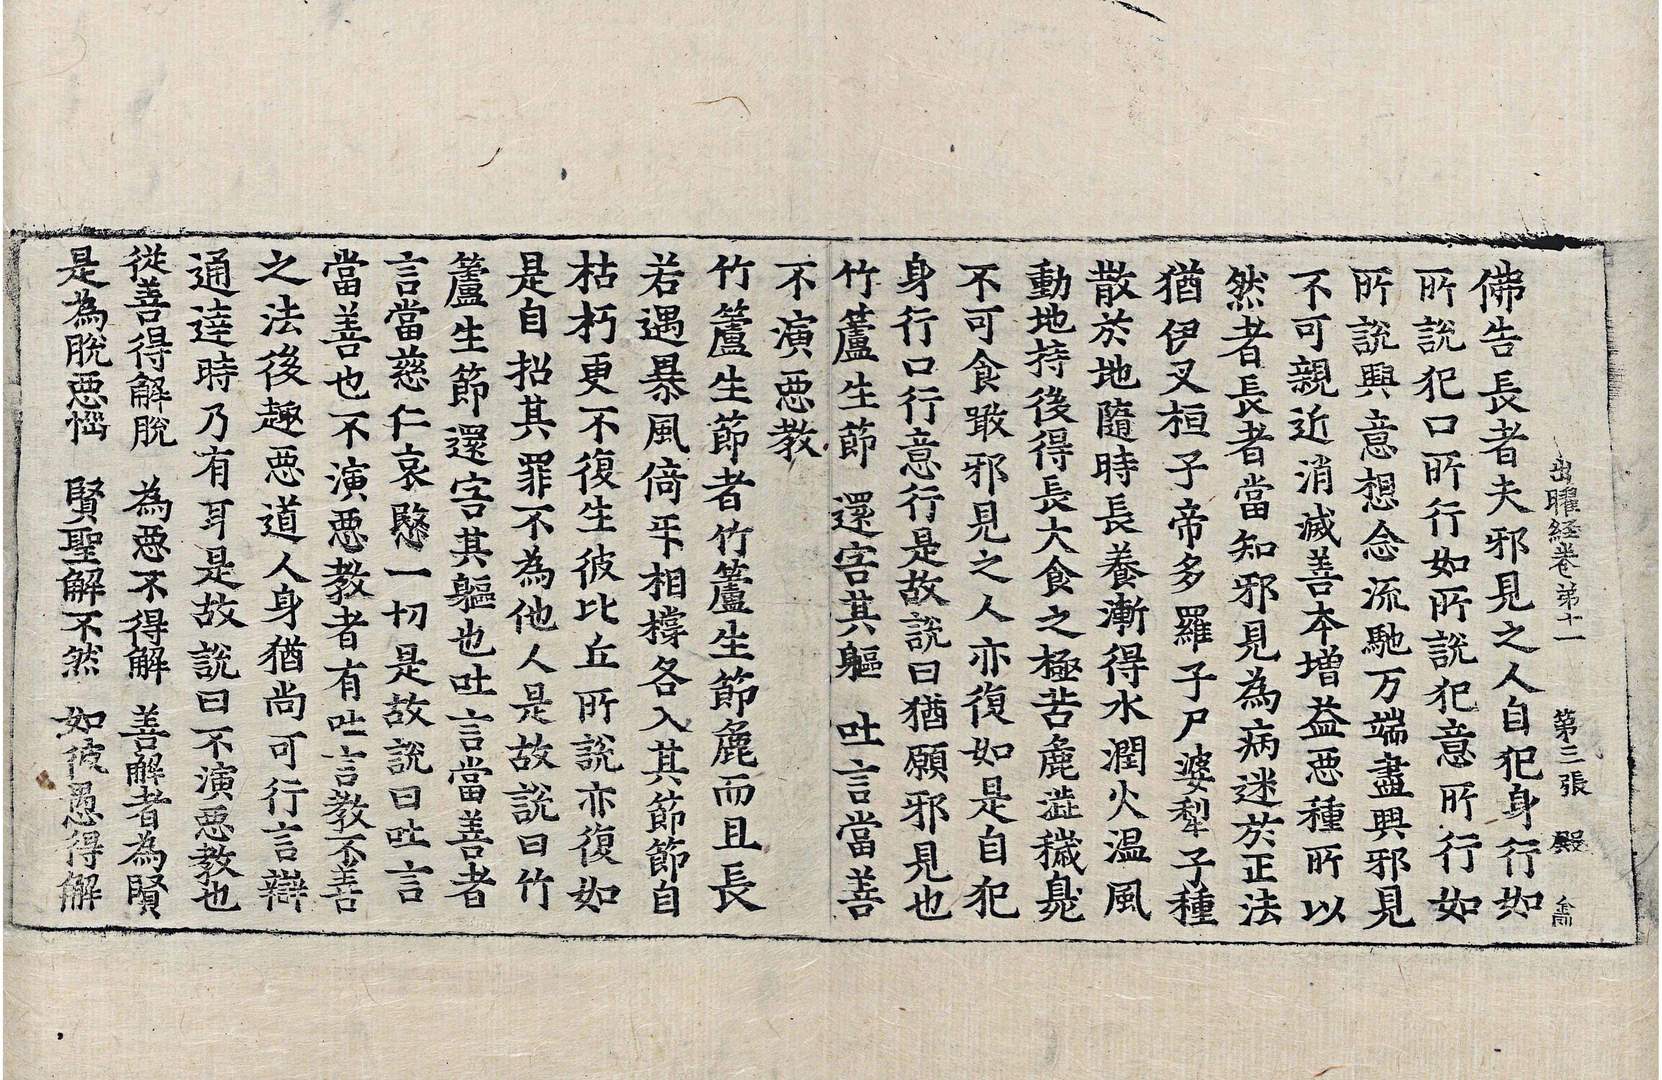 出曜経卷第十一 第三張 殿
佛告長者夫邪見之人自犯身行如
所說犯口所行如所說犯意所行如
所說興意想念流馳万端盡興邪見
不可親近消滅善本增益惡種所以
然者長者當知邪見為病迷於正法
猶伊叉桓子帝多羅子尸婆犁子種
散於地隨時長養漸得水潤火温風
動地持後得長大食之極苦麁澁穢臰
不可食噉邪見之人亦復如是自犯
身行口行意行是故說曰猶願邪見也
竹籚生節 還害其軀 吐言當善
不演惡教
竹籚生節者竹籚生節麁而且長
若遇暴風倚平相橕各入其節節自
枯朽更不復生彼比丘所說亦復如
是自招其罪不為他人是故說曰竹
籚生節還害其軀也吐言當善者
言當慈仁哀愍一切是故說曰吐言
當善也不演惡教者有吐言教不善
之法後趣惡道人身猶尚可行言辯
通達時乃有耳是故說曰不演惡教也
從善得解脫 為惡不得解 善解者為賢
是為脫惡惱 賢聖解不然 如彼愚得解